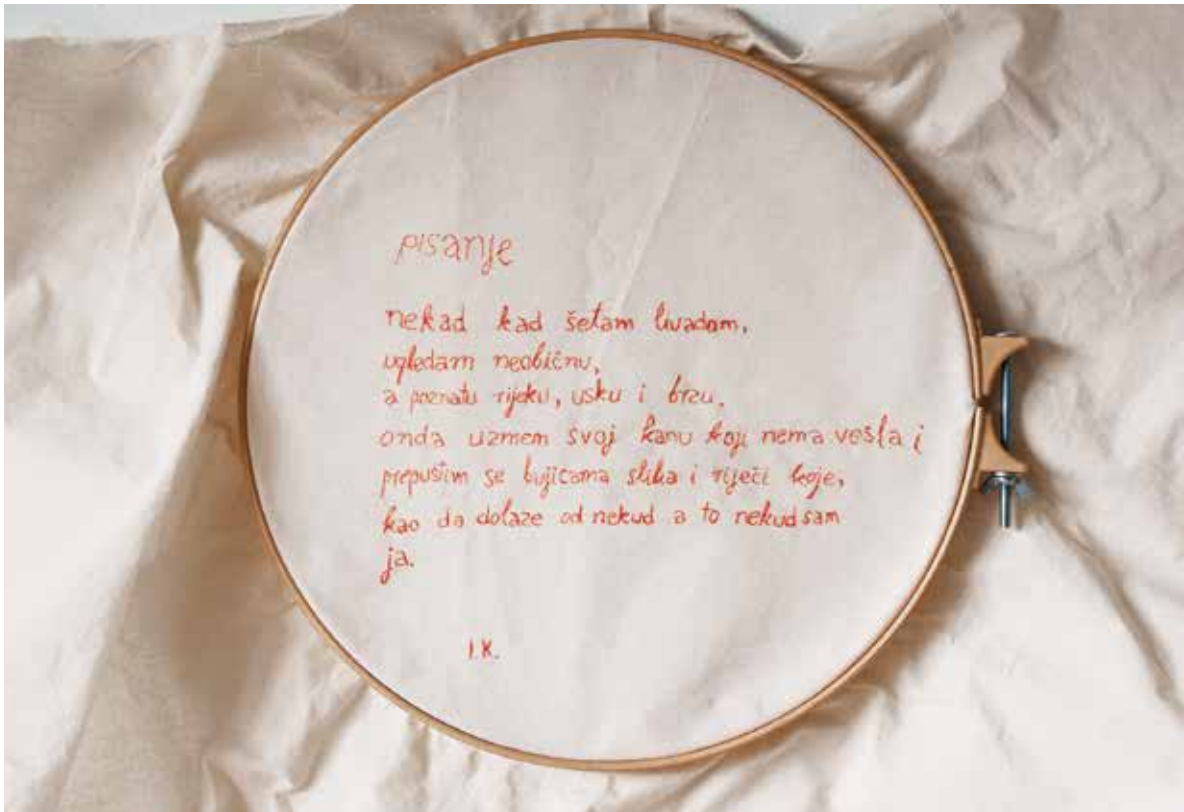 pisanje
nekad kad šetam livadom,
ugledam neobičnu,
a poznatu rijeku, usku i brzu,
onda uzmem svoj kanu koji nema vesla i
prepustim se bujicama slika i riječi koje,
kao da dolaze od nekud a to nekud sam
ja.
I.K.